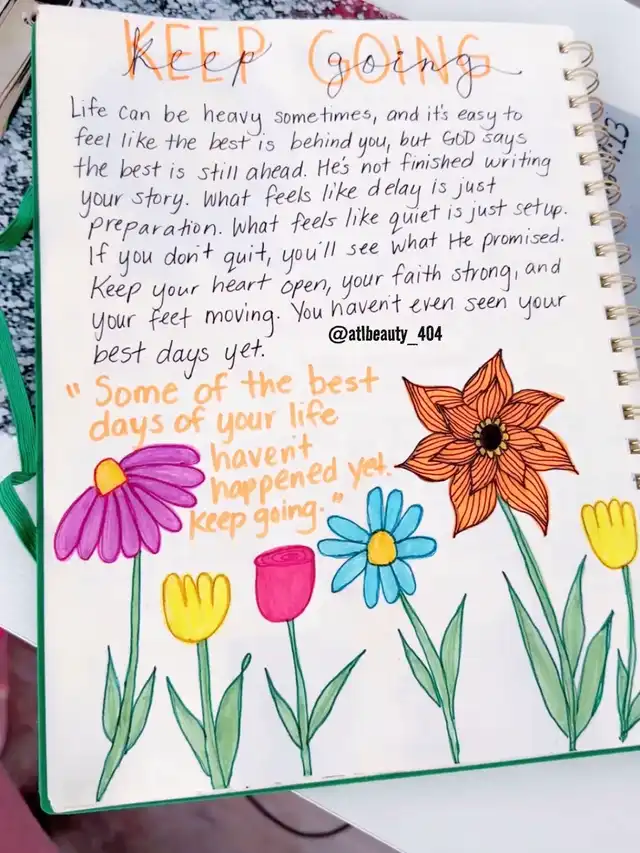 KEEP GOING
keep going
Life can be heavy sometimes, and it's easy to
feel like the best is behind you, but GOD says
the best is still ahead. He's not finished writing
your story. What feels like delay is just
preparation. What feels like quiet is just setup.
If you don't quit, you'll see what He promised.
Keep your heart open, your faith strong, and
your feet moving. You haven't even seen your
best days yet.
@atlbeauty_404
"Some of the best
days of your life
haven't
happened yet.
Keep going."